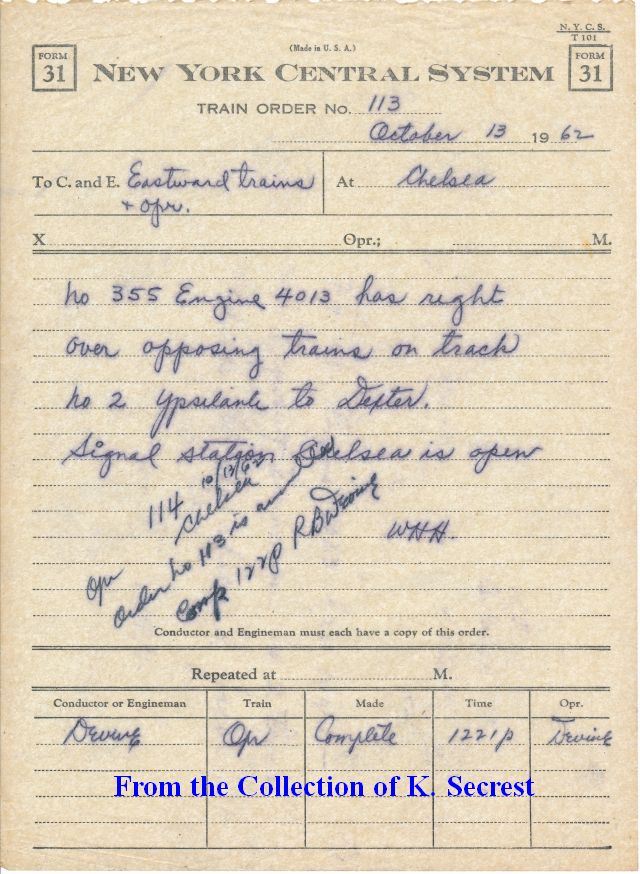 N. Y. C. S.
T 101
(Made in U. S. A.)
FORM 31
NEW YORK CENTRAL SYSTEM
FORM 31
TRAIN ORDER No. 113
October 13 1962
To C. and E. Eastward trains
+ opr.
At Chelsea
X Opr.; M.
No 355 Engine 4013 has right
over opposing trains on track
No 2 Ypsilanti to Dexter.
Signal station Chelsea is open
WHH.
114 10/13/62
Chelsea
Opr
Order No 113 is
Comp 122P R B Devine
Conductor and Engineman must each have a copy of this order.
Repeated at M.
Conductor or Engineman Train Made Time Opr.
Devine Opr Complete 1221p Devine
From the Collection of K. Secrest